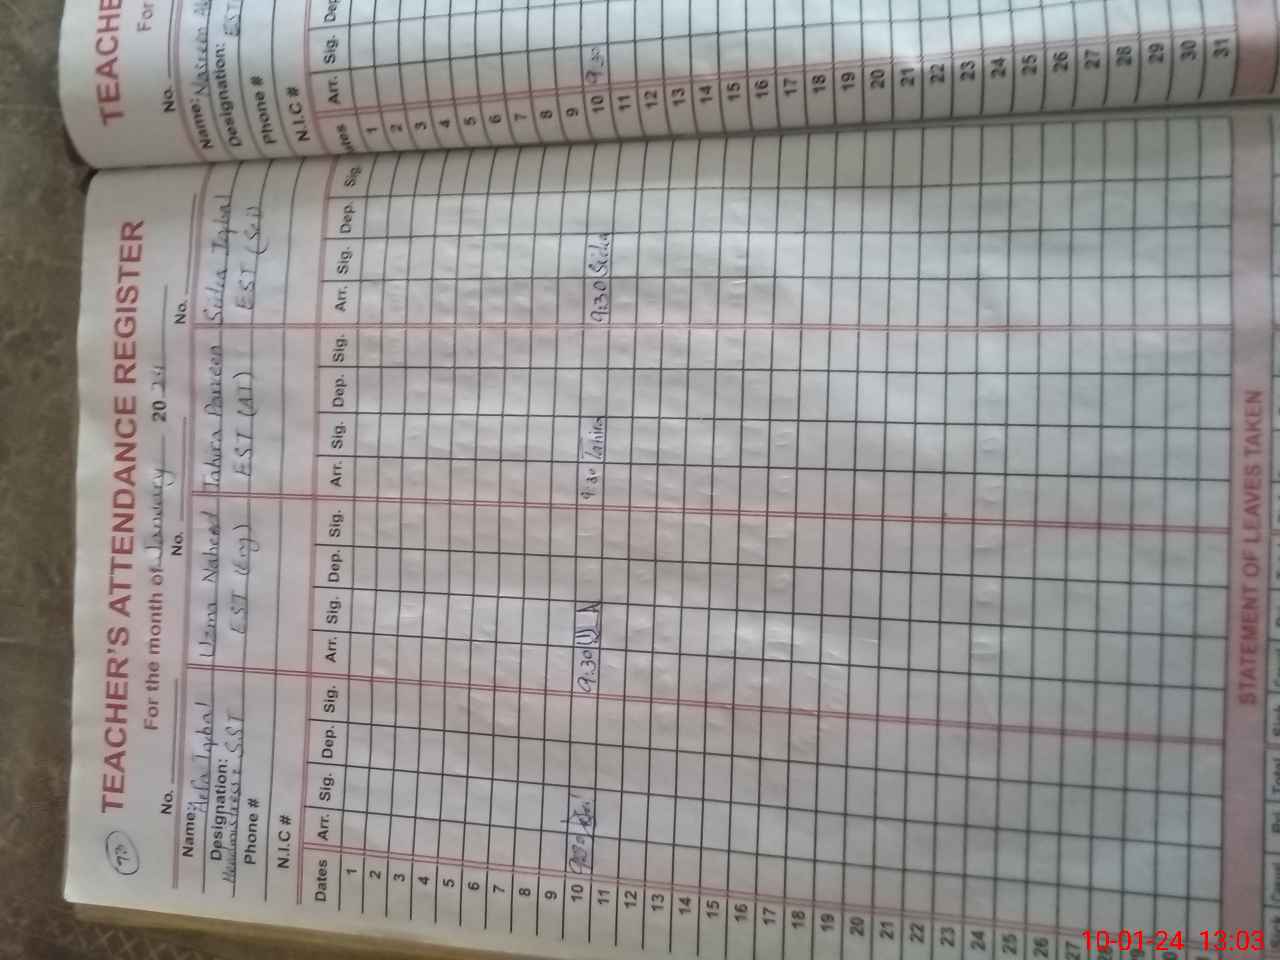 TEACHER'S ATTENDANCE REGISTER
For the month of January 2024
No. No. No. No.
Name: Iqbal Uzma Naheed Tahira Parveen Sidra Iqbal
Designation: EST (Eng) EST (AT) EST (Sci)
Headmistress SST
Phone #
N.I.C #
Dates Arr. Sig. Dep. Sig. Arr. Sig. Dep. Sig. Arr. Sig. Dep. Sig. Arr. Sig. Dep. Sig.
1
2
3
4
5
6
7
8
9
10 9:30 9:30 Tahira 9:30 Sidra
11
12
13
14
15
16
17
18
19
20
21
22
23
24
25
26
27
STATEMENT OF LEAVES TAKEN
TEACHE
For
No.
Name: Nasreen
Designation: EST
Phone #
N.I.C #
Arr. Sig. Dep
1
2
3
4
5
6
7
8
9
10 9:30
11
12
13
14
15
16
17
18
19
20
21
22
23
24
25
26
27
28
29
30
31
10-01-24 13:03